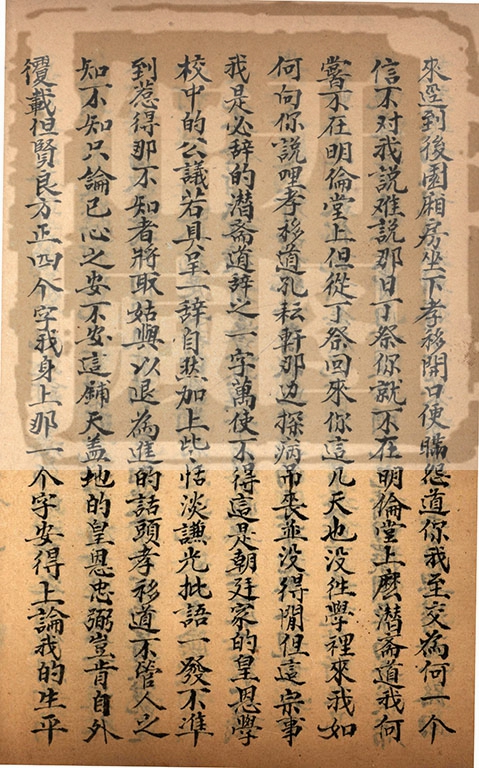 來逕到後園廂房坐下孝移開口便瞞怨道你我至交為何一个
信不对我說难說那日丁祭你就不在明倫堂上麽潛斋道我何
嘗不在明倫堂上但從丁祭回來你這几天也没徃學裡來我如
何向你說哩孝移道孔耘軒那边探病吊丧並没得閒但這宗事
我是必辞的潛斋道辞之一字萬使不得這是朝廷家的皇恩學
校中的公議若具呈一辞自然加上些恬淡謙光批語一發不准
到惹得那不知者將取姑與以退為進的話頭孝移道不管人之
知不知只論已心之安不安這鋪天盖地的皇恩忠弼豈肯自外
覆載但賢良方正四个字我身上那一个字安得上論我的生平